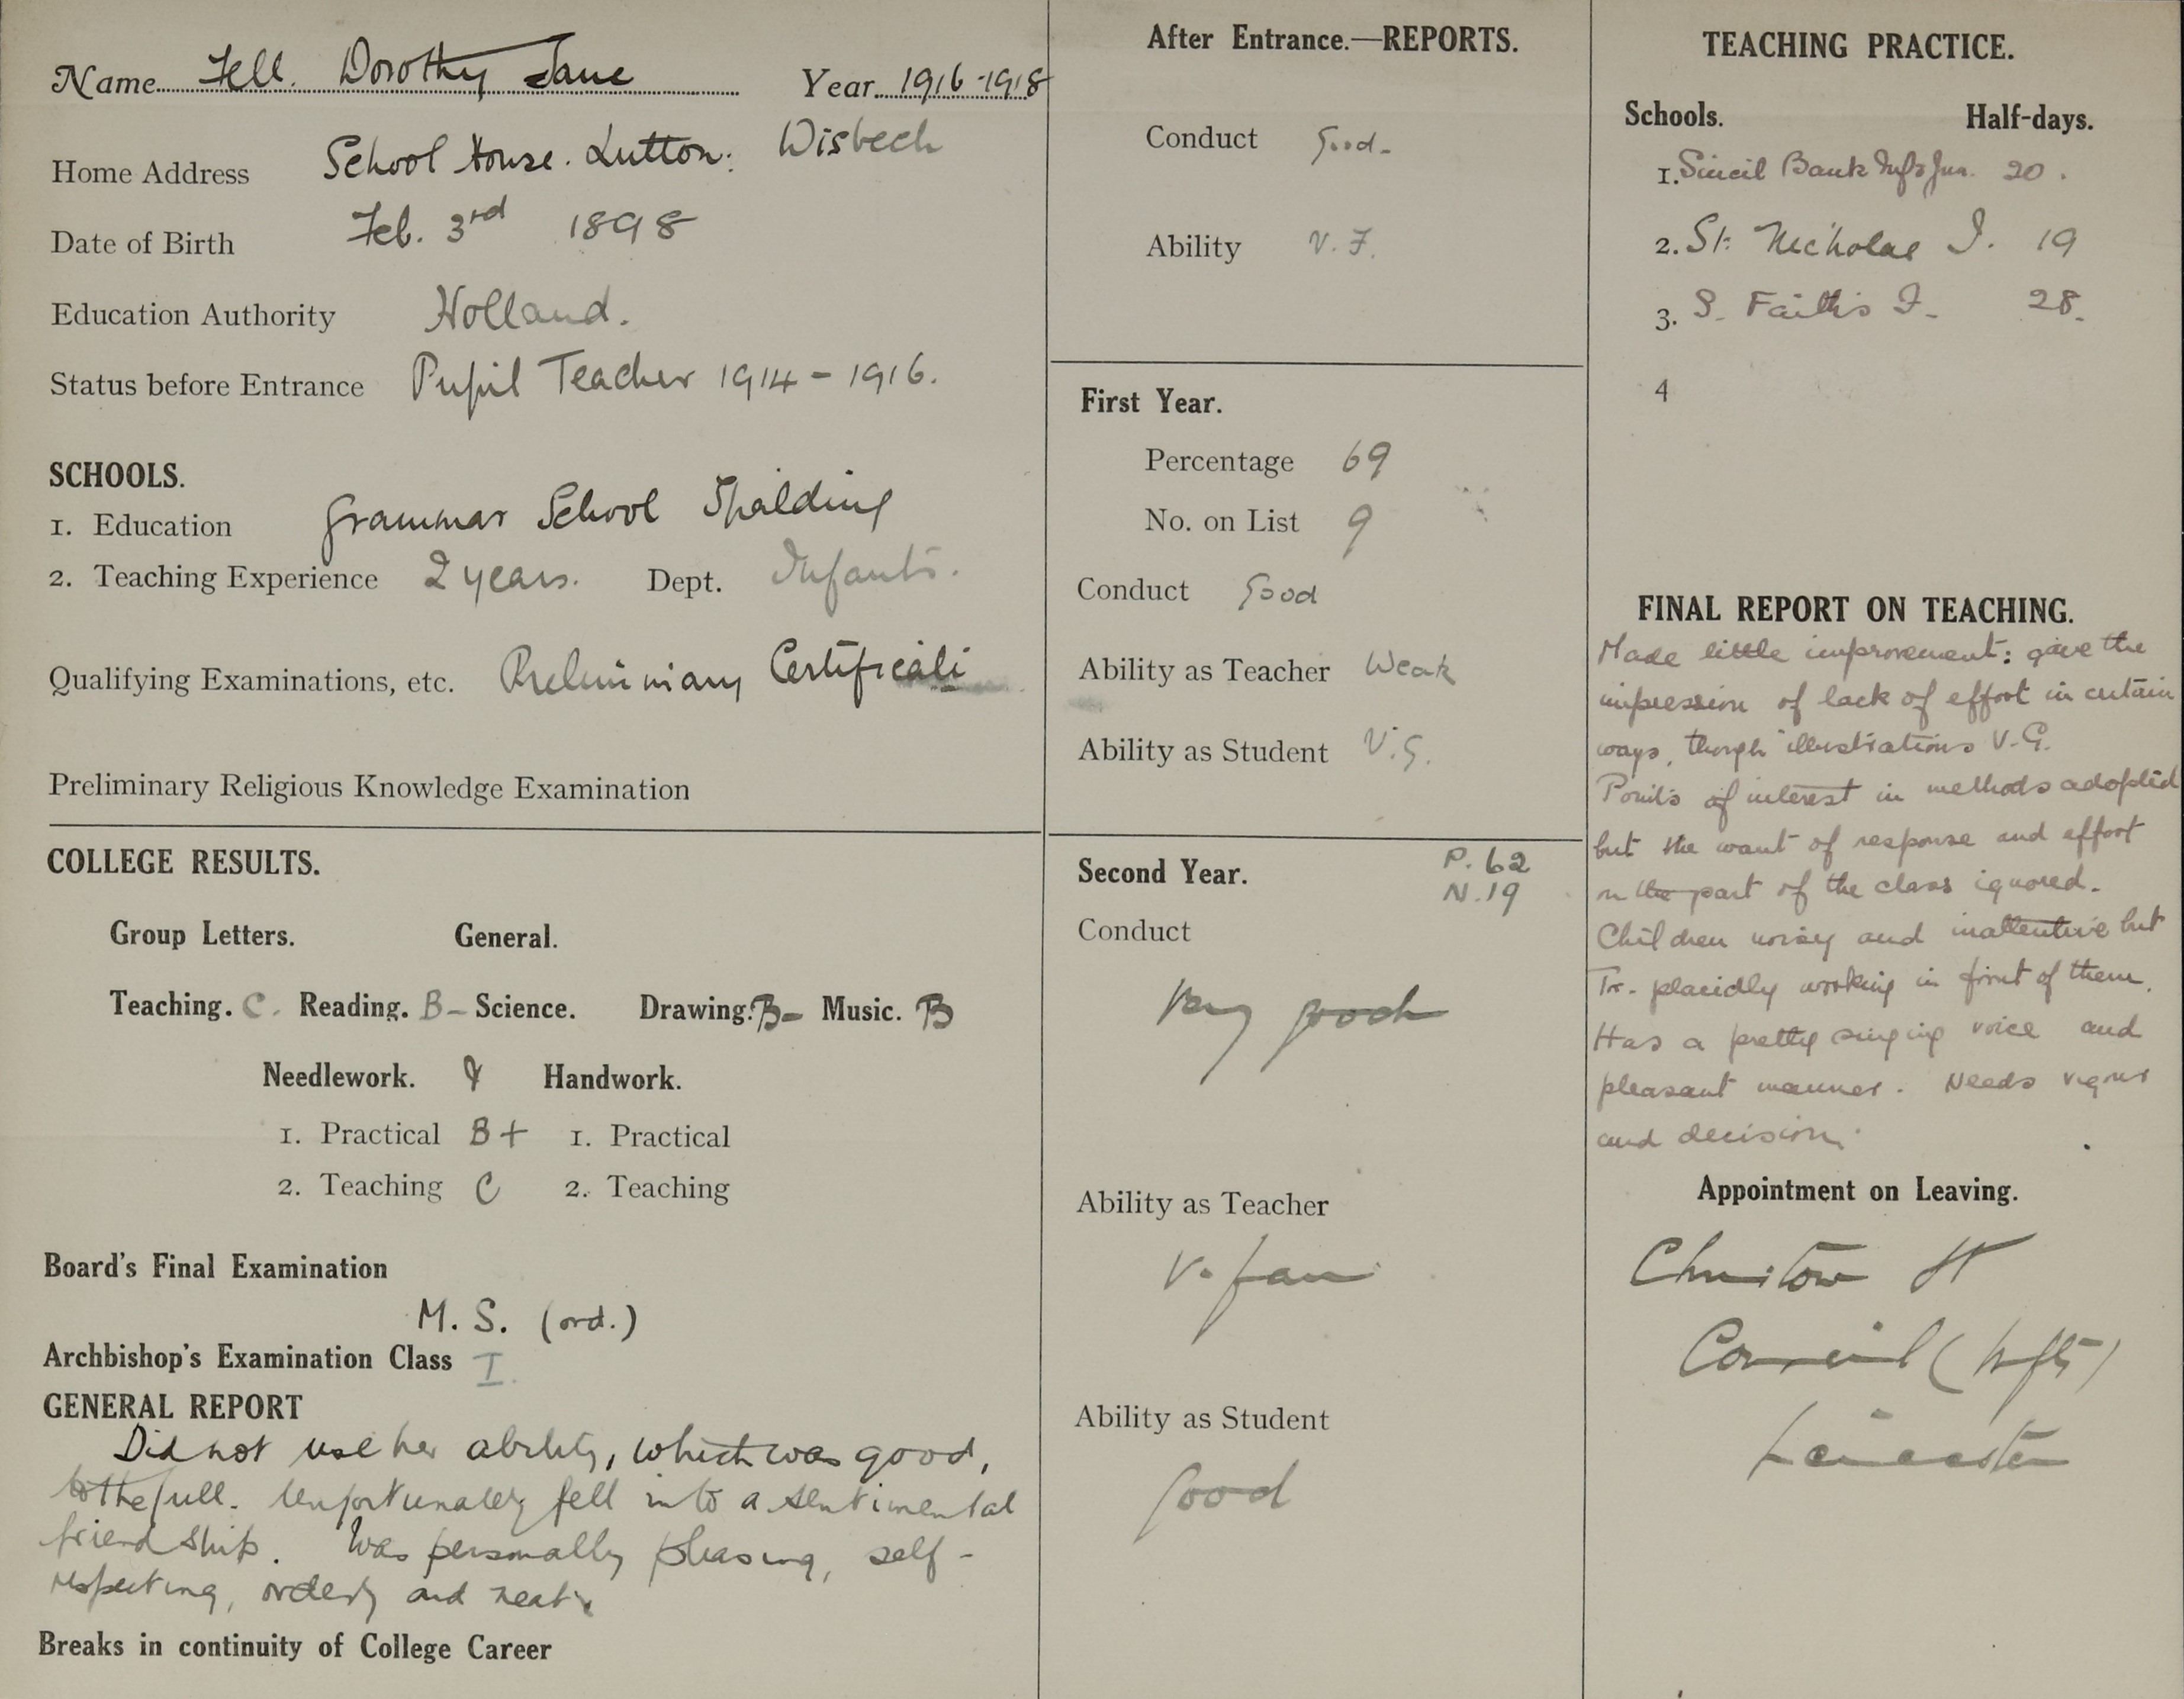 Name Fell. Dorothy Jane Year 1916-1918
Home Address School House. Lutton: Wisbech
Date of Birth Feb. 3rd 1898
Education Authority Holland.
Status before Entrance Pupil Teacher 1914 - 1916.
SCHOOLS.
1. Education Grammar School Spalding
2. Teaching Experience 2 years. Dept. Infants.
Qualifying Examinations, etc. Preliminary Certificate
Preliminary Religious Knowledge Examination
COLLEGE RESULTS.
Group Letters. General.
Teaching. C. Reading. B- Science. Drawing. B- Music. B
Needlework. & Handwork.
1. Practical B+ 1. Practical
2. Teaching C 2. Teaching
Board's Final Examination
M. S. (ord.)
Archbishop's Examination Class I.
GENERAL REPORT
Did not use her ability, which was good,
to the full. Unfortunately fell into a sentimental
friendship. Was personally pleasing, self-
respecting, orderly and neat.
Breaks in continuity of College Career
After Entrance.—REPORTS.
Conduct Good.
Ability V. F.
First Year.
Percentage 69
No. on List 9
Conduct Good
Ability as Teacher Weak
Ability as Student V.G.
Second Year. P. 62
N. 19
Conduct
Very good
Ability as Teacher
V. fair
Ability as Student
Good
TEACHING PRACTICE.
Schools. Half-days.
1. Sincil Bank Infs Jun. 20.
2. St. Nicholas I. 19
3. S. Faith's I. 28.
4
FINAL REPORT ON TEACHING.
Made little improvement: gave the
impression of lack of effort in certain
ways, though illustrations V.G.
Points of interest in methods adopted
but the want of response and effort
on the part of the class ignored.
Children noisy and inattentive but
Tr. placidly working in front of them.
Has a pretty singing voice and
pleasant manner. Needs vigour
and decision.
Appointment on Leaving.
Christow St
Council (Infts)
Leicester